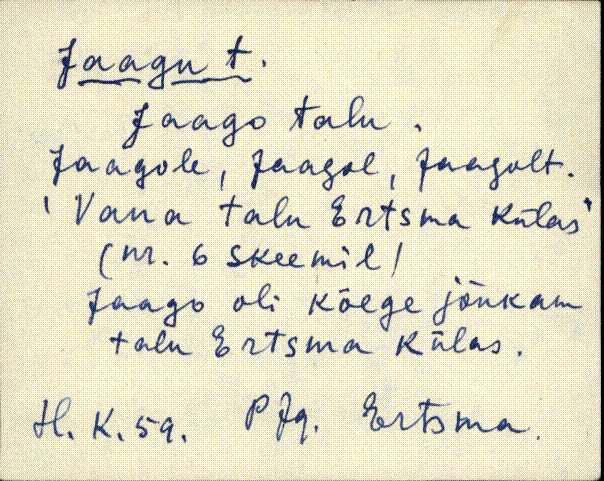 Jaagu t.
Jaago talu.
Jaagole, Jaagol, Jaagolt.
'Vana talu Ertsma külas'
(nr. 6 skeemil)
Jaago oli kõege jõukam
talu Ertsma külas.
H.K. 59. PJg. Ertsma.